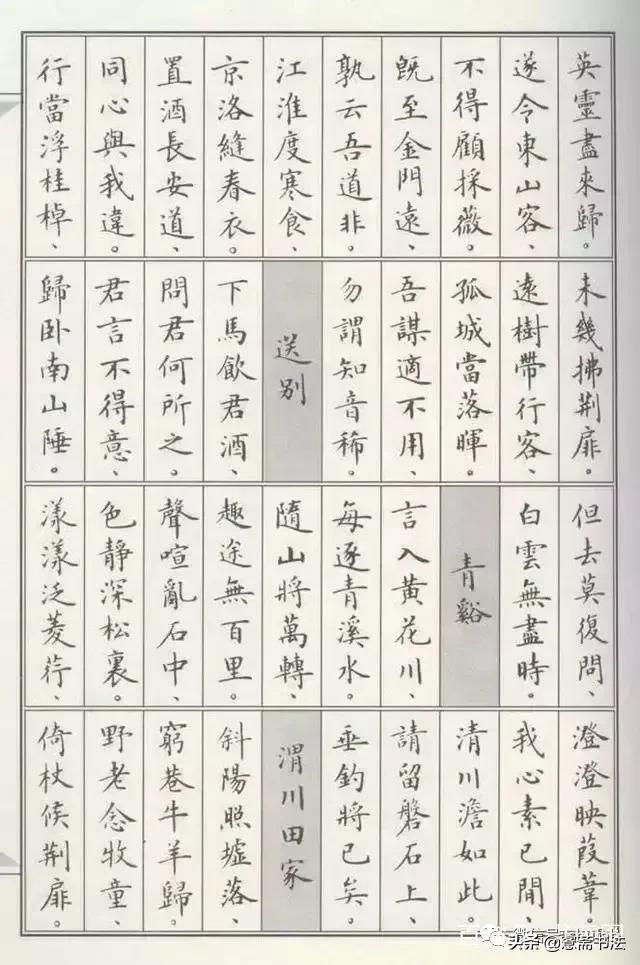 英靈盡來歸。
遂令東山客、
不得顧採薇。
既至金門遠、
孰云吾道非。
江淮度寒食、
京洛縫春衣。
置酒長安道、
同心與我違。
行當浮桂棹、
未幾拂荊扉。
遠樹帶行客、
孤城當落暉。
吾謀適不用、
勿謂知音稀。
送別
下馬飲君酒、
問君何所之。
君言不得意、
歸卧南山陲。
但去莫復問、
白雲無盡時。
青谿
言入黃花川、
每逐青溪水。
隨山將萬轉、
趣途無百里。
聲喧亂石中、
色靜深松裏。
漾漾泛菱荇、
澄澄映葭葦。
我心素已閒、
清川澹如此。
請留磐石上、
垂釣將已矣。
渭川田家
斜陽照墟落、
窮巷牛羊歸。
野老念牧童、
倚杖候荊扉。
头条 @慧斋书法